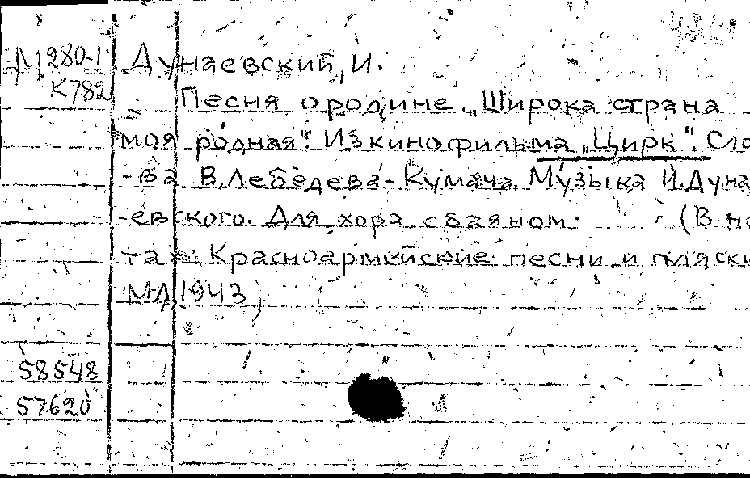 М280-1 Дунаевский, И.
К782
Песня о родине. „Широка страна
моя родная". Из кинофильма „Цирк". Сло
-ва В.Лебедева-Кумача. Музыка И.Дуна
-евского. Для хора с баяном. (В но
тах: Красноармейские песни и пляски
1943)
58548
57620